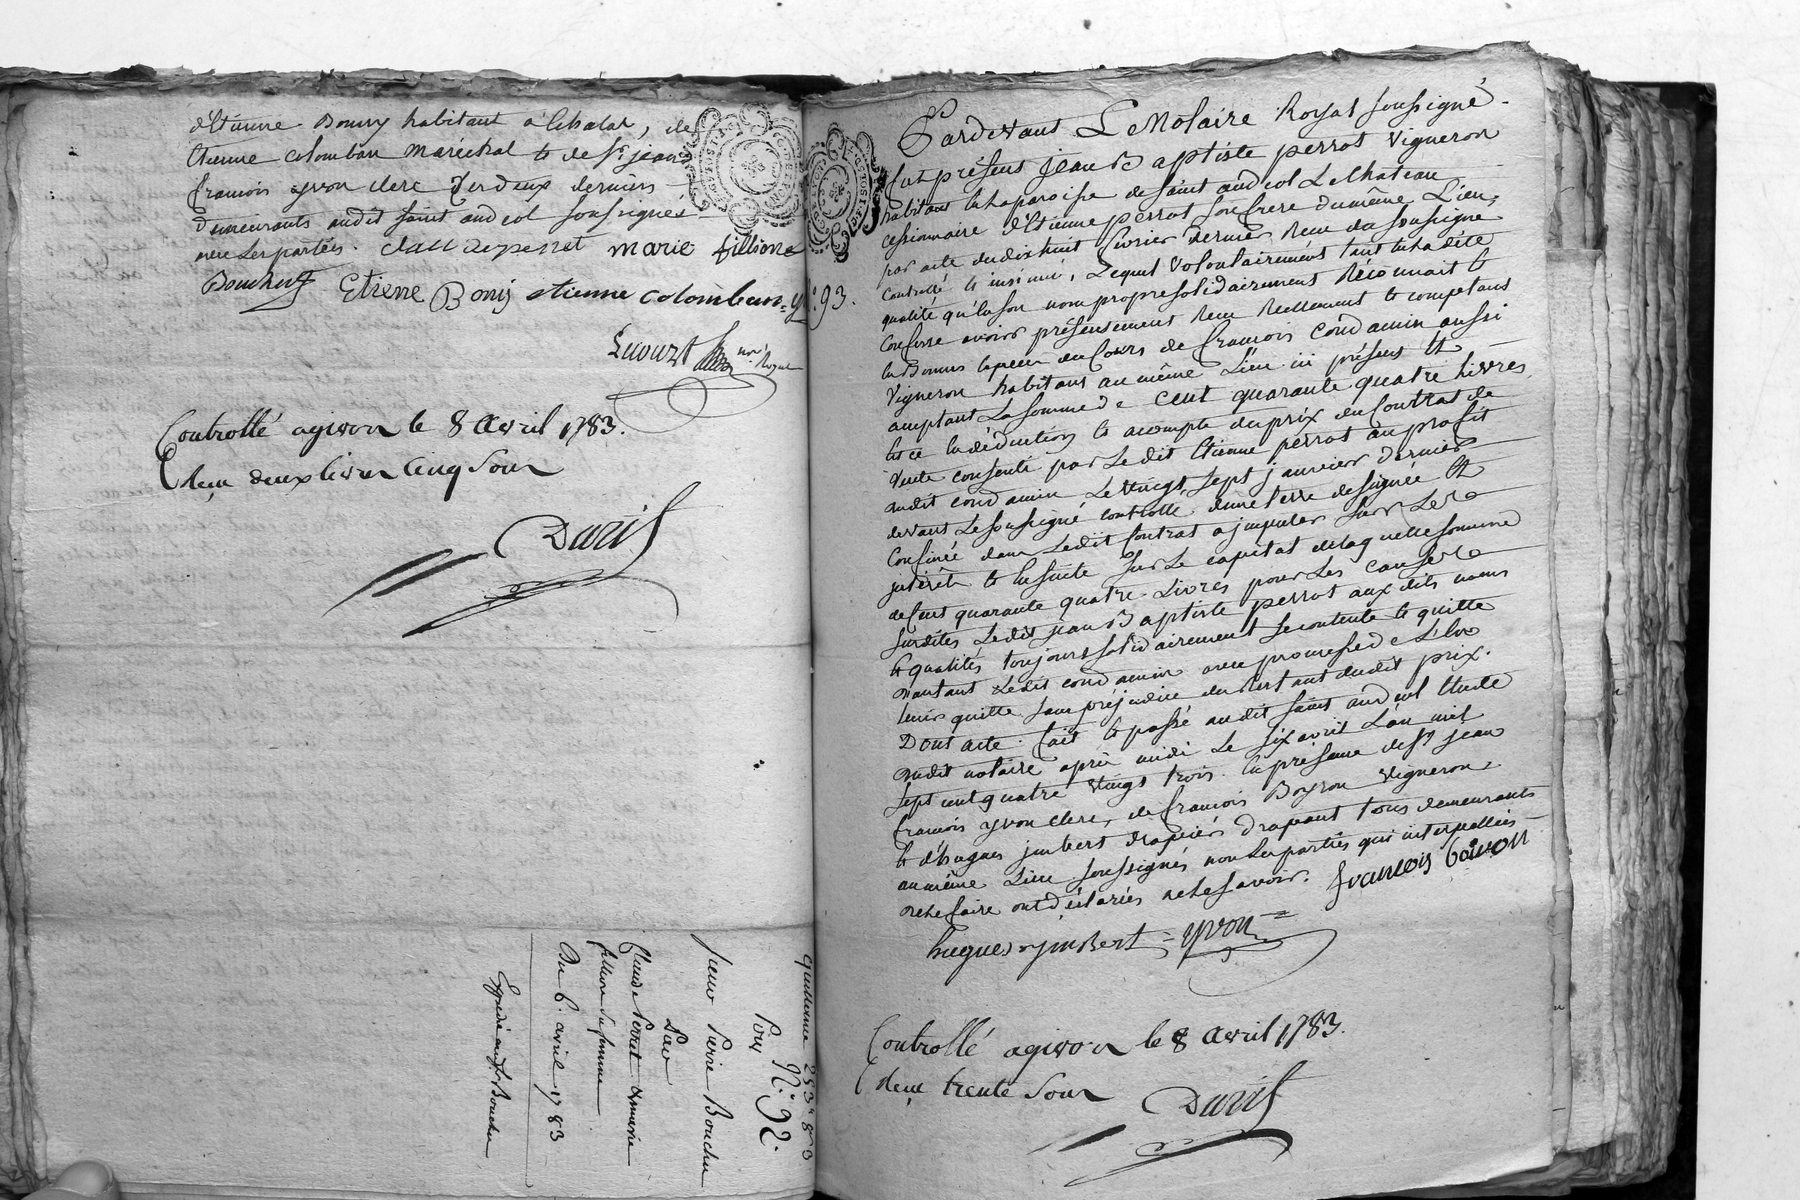 d'Etienne Boury habitant à Chalat, de
Etienne colomban marechal & de Sr jean
francois yvon clerc Ces deux derniers
demeurants audit saint andeol soussignés
avec les parties. Claude perret marie fillione
Boucher Etiene Boris etienne colomban yvon
nre Royal
Controllé a givor le 8 avril 1783.
Reçu deux livres cinq sour
Davit
quittance 253 8 3
Pour N.º 92.
sieur Pierre Boucher
Par
Claude Perret & marie
fillion sa femme
Du 6. avril 1783
Expédié audt Boucher
Nº 93.
Pardevant Le Notaire Royal soussigné
fut présent jean Baptiste perrot vigneron
habitant la paroisse de saint andeol Le Chateau
cessionnaire d'Etienne perrot son frere du même Lieu,
par acte du dix huit fevrier dernier Reçu du soussigné
Controllé & insinué, Lequel volontairement tant en ladite
qualité qu'en son nom propre solidairement Reconnait &
confesse avoir présentement Reçu Reellement & comptant
en Bonnes espèces du Cours de francois condamin aussi
vigneron habitant au même Lieu ici présent &
acceptant La somme de cent quarante quatre Livres
& ce en déduction & acompte du prix du Contrat de
vente consenti par Le dit Etienne perrot au profit
dudit condamin Le vingt sept janvier dernier
devant Le soussigné controllé d'une terre designée &
Confinée dans Ledit Contrat a imputer sur Les
intérêts & ensuite sur Le capital de laquelle somme
de Cent quarante quatre Livres pour Les causes
susdites Ledit jean Baptiste perrot aux dits noms
& qualités toujours solidairement se contente & quitte
d'autant Ledit condamin avec promesse de L'en
tenir quitte sans préjudice du Restant dudit prix.
Dont acte. fait & passé audit saint andeol Etude
dudit notaire après midi Le six avril L'an mil
sept cent quatre vingt trois. En présence de Sr jean
francois yvon clerc, de francois Boyron vigneron
& d'hugues jmbert drapier drapant tous demeurants
au même Lieu soussignés non Les parties qui interpellées
de le faire ont déclarées ne le savoir. francois boiron
hugues ymbert yvon
Controllé a givor le 8 avril 1783.
Reçu trente sour
Davit